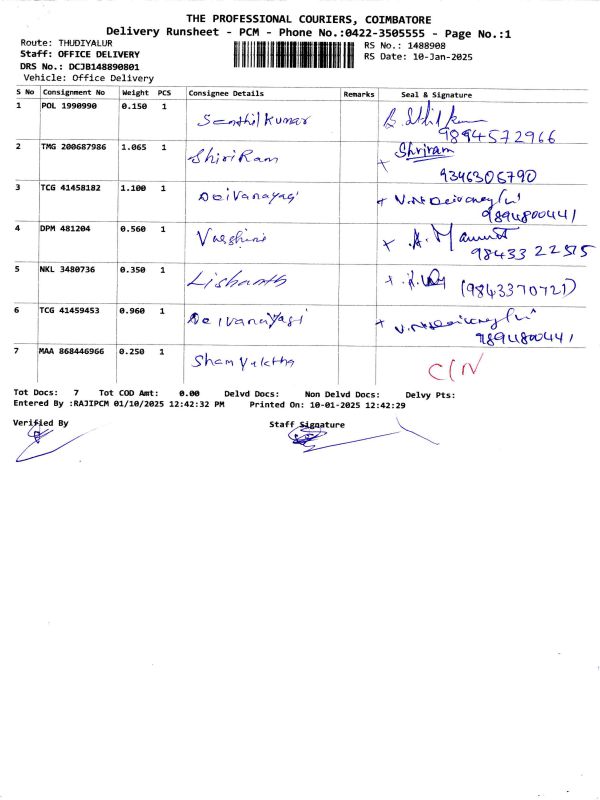 THE PROFESSIONAL COURIERS, COIMBATORE
Delivery Runsheet - PCM - Phone No.:0422-3505555 - Page No.:1
Route: THUDIYALUR RS No.: 1488908
Staff: OFFICE DELIVERY RS Date: 10-Jan-2025
DRS No.: DCJB148890801
Vehicle: Office Delivery
S No Consignment No Weight PCS Consignee Details Remarks Seal & Signature
1 POL 1990990 0.150 1 Senthil Kumar
9894572966
2 TMG 200687986 1.065 1 Shiri Ram Shriram
9346306790
3 TCG 41458182 1.100 1 Deivanayagi
9894800441
4 DPM 481204 0.560 1 Varshini
98433 22515
5 NKL 3480736 0.350 1 Lishanth (9843370721)
6 TCG 41459453 0.960 1 Deivanayagi
9894800441
7 MAA 868446966 0.250 1 C/N
Tot Docs: 7 Tot COD Amt: 0.00 Delvd Docs: Non Delvd Docs: Delvy Pts:
Entered By :RAJIPCM 01/10/2025 12:42:32 PM Printed On: 10-01-2025 12:42:29
Verified By Staff Signature